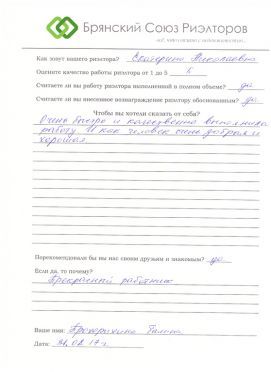 Брянский Союз Риэлторов
Как зовут вашего риэлтора? Екатерина Николаевна
Оцените качество работы риэлтора от 1 до 5 5
Считаете ли вы работу риэлтора выполненной в полном объеме? да
Считаете ли вы внесенное вознаграждение риэлтору обоснованным? да.
Чтобы вы хотели сказать от себя?
Очень быстро и качественно выполнила
работу. И как человек очень добрая и
хорошая.
Порекомендовали бы вы нас своим друзьям и знакомым? да
Если да, то почему?
Прекрасный работник
Ваше имя: Галина
Дата: 17 г.